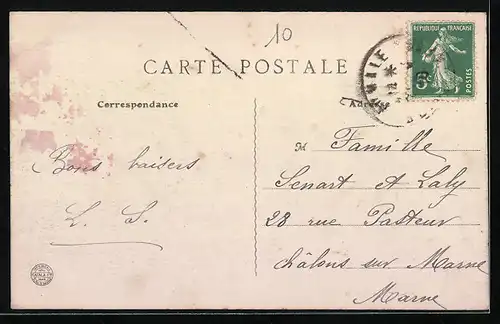 10
RÉPUBLIQUE FRANÇAISE
5c
POSTES
CARTE POSTALE
Correspondance
L'Adresse
Bons baisers
L. S.
M Famille
Senart et Laly
28 rue Pasteur
châlons sur Marne
Marne